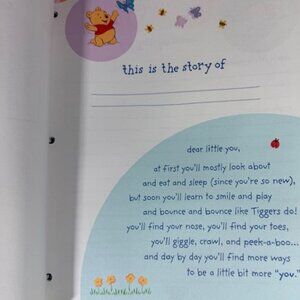 this is the story of
dear little you,
at first you'll mostly look about
and eat and sleep (since you're so new),
but soon you'll learn to smile and play
and bounce and bounce like Tiggers do!
you'll find your nose, you'll find your toes,
you'll giggle, crawl, and peek-a-boo...
and day by day you'll find more ways
to be a little bit more "you."